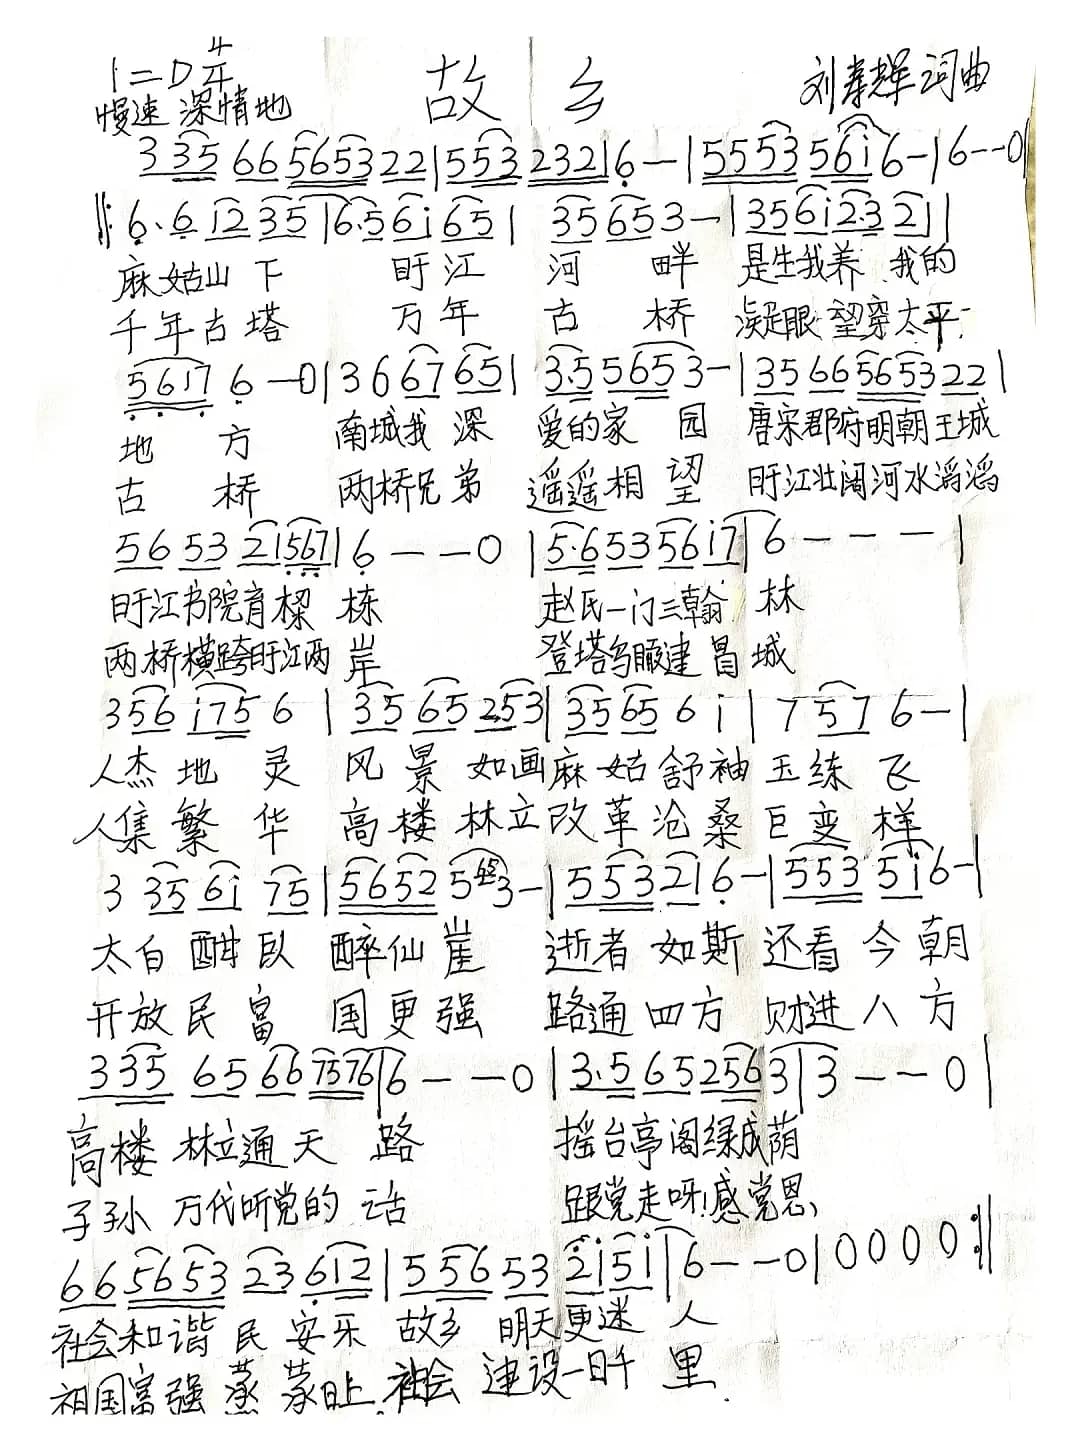 1=D 4/4
故乡
刘孝辉 词曲
慢速 深情地
3 35 66 5653 22|553 2321 6—|5553 56i 6—|6——0|
‖:6·6 i2 35|6·5 6i 65|35 653—|356i2·3 21|
麻姑山下 盱江 河畔 是生我养 我的
千年古塔 万年 古桥 凝眼望穿太平
5617 6—0|3667 65|3·5 5653—|35 66 5653 22|
地方 南城我深 爱的家园 唐宋郡府明朝王城
古桥 两桥兄弟 遥遥相望 盱江壮阔河水滔滔
56 53 21567|6———0|5·6 53 56i7|6———|
盱江书院育樑栋 赵氏一门三翰林
两桥横跨盱江两岸 登塔鸟瞰建昌城
356 i75 6|35 65 253|35 65 6 i|7 57 6—|
人杰地灵 风景如画 麻姑舒袖玉练飞
人集繁华 高楼林立 改革沧桑巨变样
3 35 6i 75|5652 5 653—|553 21 6—|553 5i 6—|
太白酣臥 醉仙崖 逝者如斯 还看今朝
开放民富 国更强 路通四方 财进八方
335 65 66 7576|6———0|3·5 65 256 3|3——0|
高楼 林立通天路 摇台亭阁绿成荫
子孙 万代听党的话 跟党走呀!感党恩、
66 5653 23 612|5 56 53 2i5i|6——0|0000:‖
社会和谐民安乐 故乡 明天更迷人
祖国富强蒸蒸日上.社会 建设一日千里.